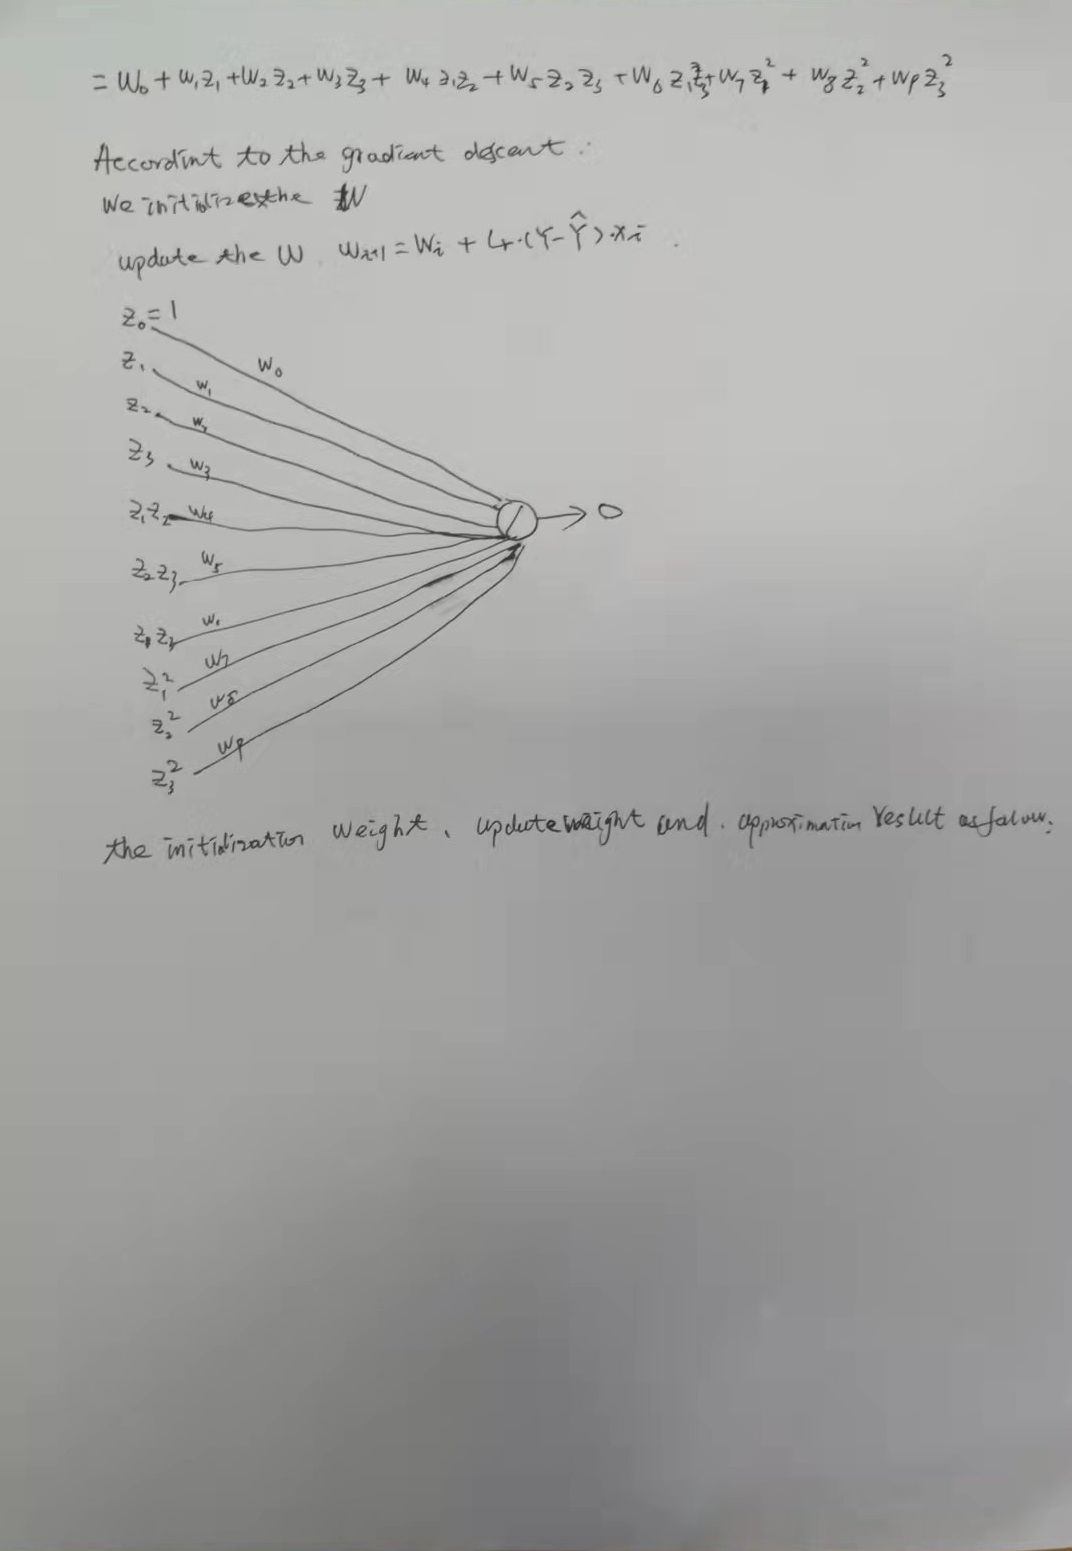 = W₀ + W₁Z₁ + W₂Z₂ + W₃Z₃ + W₄Z₁Z₂ + W₅Z₂Z₃ + W₆Z₁Z₃ + W₇Z₁² + W₈Z₂² + W₉Z₃²
Accordint to the gradient descent :
We initialize the W
update the W Wᵢ₊₁ = Wᵢ + Lr·(Y-Ŷ)·xᵢ .
Z₀=1
W₀
Z₁
W₁
Z₂
W₂
Z₃
W₃
Z₁Z₂
W₄
O
Z₂Z₃
W₅
Z₁Z₃
W₆
Z₁²
W₇
Z₂²
W₈
Z₃²
W₉
the initialization weight、update weight and . approximation result as follow: